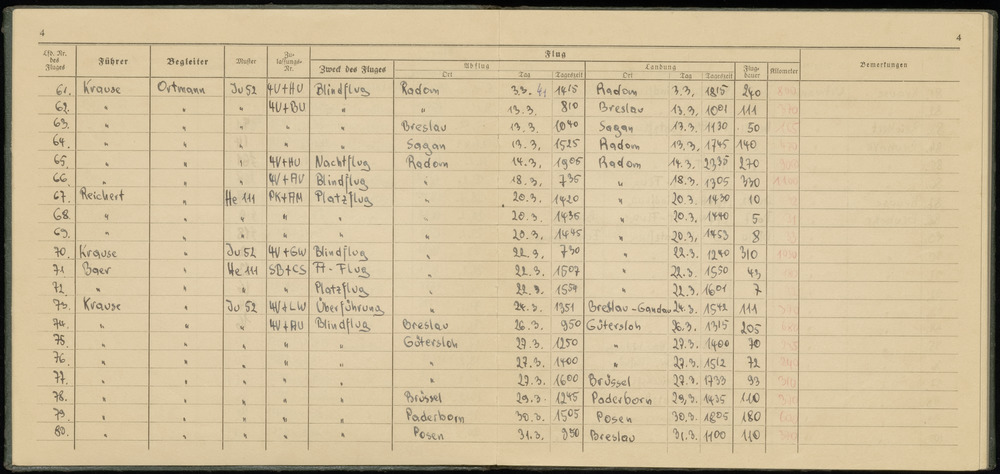 4
4
Lfd. Nr. des Fluges Führer Begleiter Muster Zu-lassungs-Nr. Zweck des Fluges Flug Abflug Ort Tag Tageszeit Landung Ort Tag Tageszeit Flug-dauer Kilometer Bemerkungen
61. Krause Ortmann Ju 52 4V+HU Blindflug Radom 3.3. 41 1415 Radom 3.3. 1815 240
62. " " " 4V+BU " " 13.3. 810 Breslau 13.3. 1001 111
63. " " " " " Breslau 13.3. 1040 Sagan 13.3. 1130 50
64. " " " " " Sagan 13.3. 1525 Radom 13.3. 1745 140
65. " " " 4V+HU Nachtflug Radom 14.3. 1905 Radom 14.3. 2335 270
66. " " " 4V+AU Blindflug " 18.3. 735 " 18.3. 1305 330
67. Reichert " He 111 PK+AM Platzflug " 20.3. 1420 " 20.3. 1430 10
68. " " " " " " 20.3. 1435 " 20.3. 1440 5
69. " " " " " " 20.3. 1445 " 20.3. 1453 8
70. Krause " Ju 52 4V+GW Blindflug " 22.3. 730 " 22.3. 1240 310
71. Baer " He 111 SB+CS Ft-Flug " 22.3. 1507 " 22.3. 1550 43
72. " " " " Platzflug " 22.3. 1554 " 22.3. 1601 7
73. Krause " Ju 52 4V+LW Überführung " 24.3. 1351 Breslau-Gandau 24.3. 1542 111
74. " " " 4V+AU Blindflug Breslau 26.3. 950 Gütersloh 26.3. 1315 205
75. " " " " " Gütersloh 27.3. 1250 " 27.3. 1400 70
76. " " " " " " 27.3. 1400 " 27.3. 1512 72
77. " " " " " " 27.3. 1600 Brüssel 27.3. 1733 93
78. " " " " " Brüssel 29.3. 1245 Paderborn 29.3. 1435 110
79. " " " " " Paderborn 30.3. 1505 Posen 30.3. 1805 180
80. " " " " " Posen 31.3. 950 Breslau 31.3. 1100 110